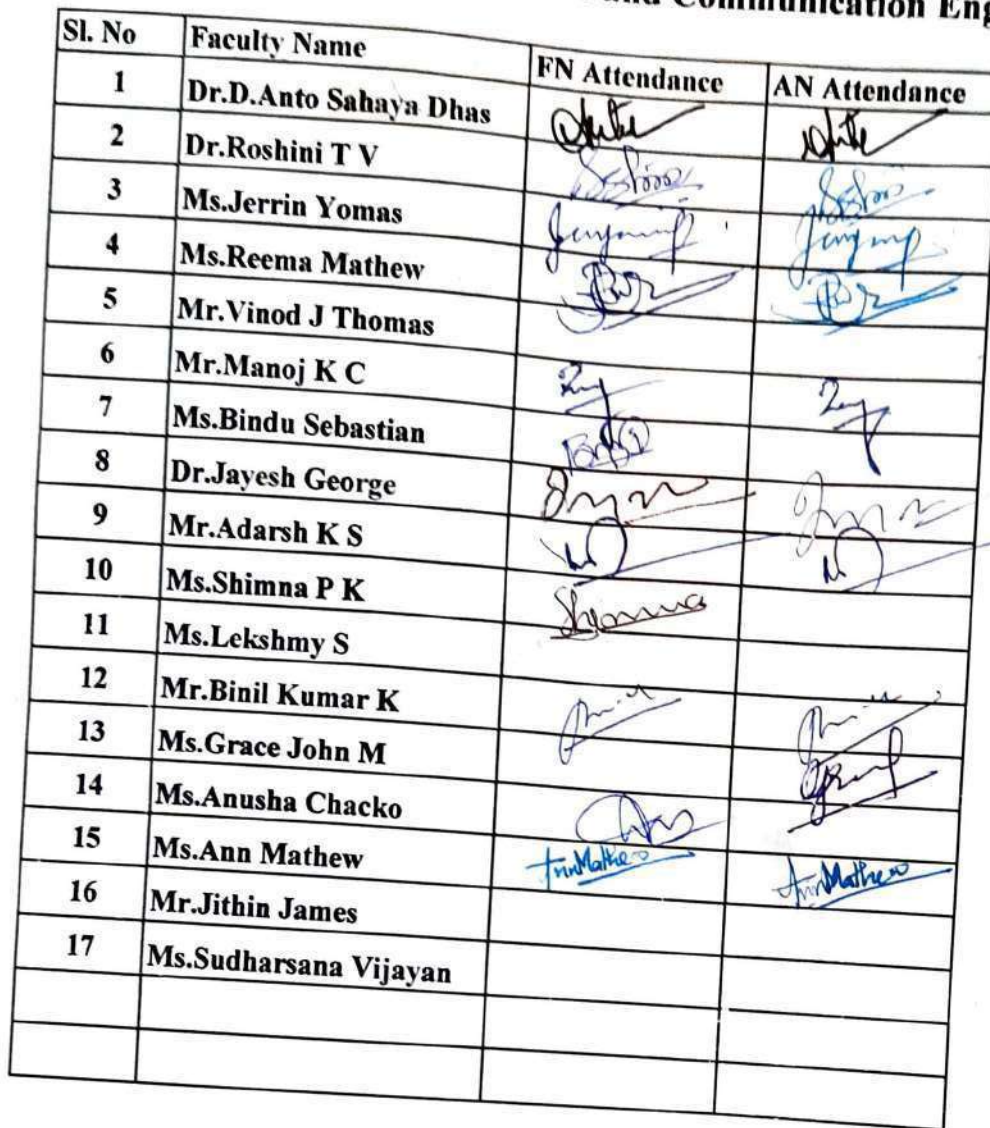 and Communication Eng
Sl. No Faculty Name FN Attendance AN Attendance
1 Dr.D.Anto Sahaya Dhas
2 Dr.Roshini T V
3 Ms.Jerrin Yomas
4 Ms.Reema Mathew
5 Mr.Vinod J Thomas
6 Mr.Manoj K C
7 Ms.Bindu Sebastian
8 Dr.Jayesh George
9 Mr.Adarsh K S
10 Ms.Shimna P K Shimna
11 Ms.Lekshmy S
12 Mr.Binil Kumar K
13 Ms.Grace John M
14 Ms.Anusha Chacko
15 Ms.Ann Mathew AnnMathew AnnMathew
16 Mr.Jithin James
17 Ms.Sudharsana Vijayan